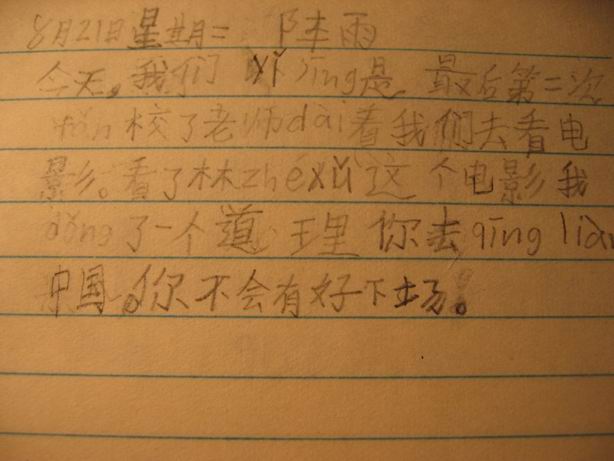 8月21日星期二 阵雨
今天,我们 yǐ jīng是 最后第二次
fǎn校了老师dài着我们去看电
影。看了林zhéxú这个电影我
dǒng了一个道理 你去qīng lüè
中国。你不会有好下场。